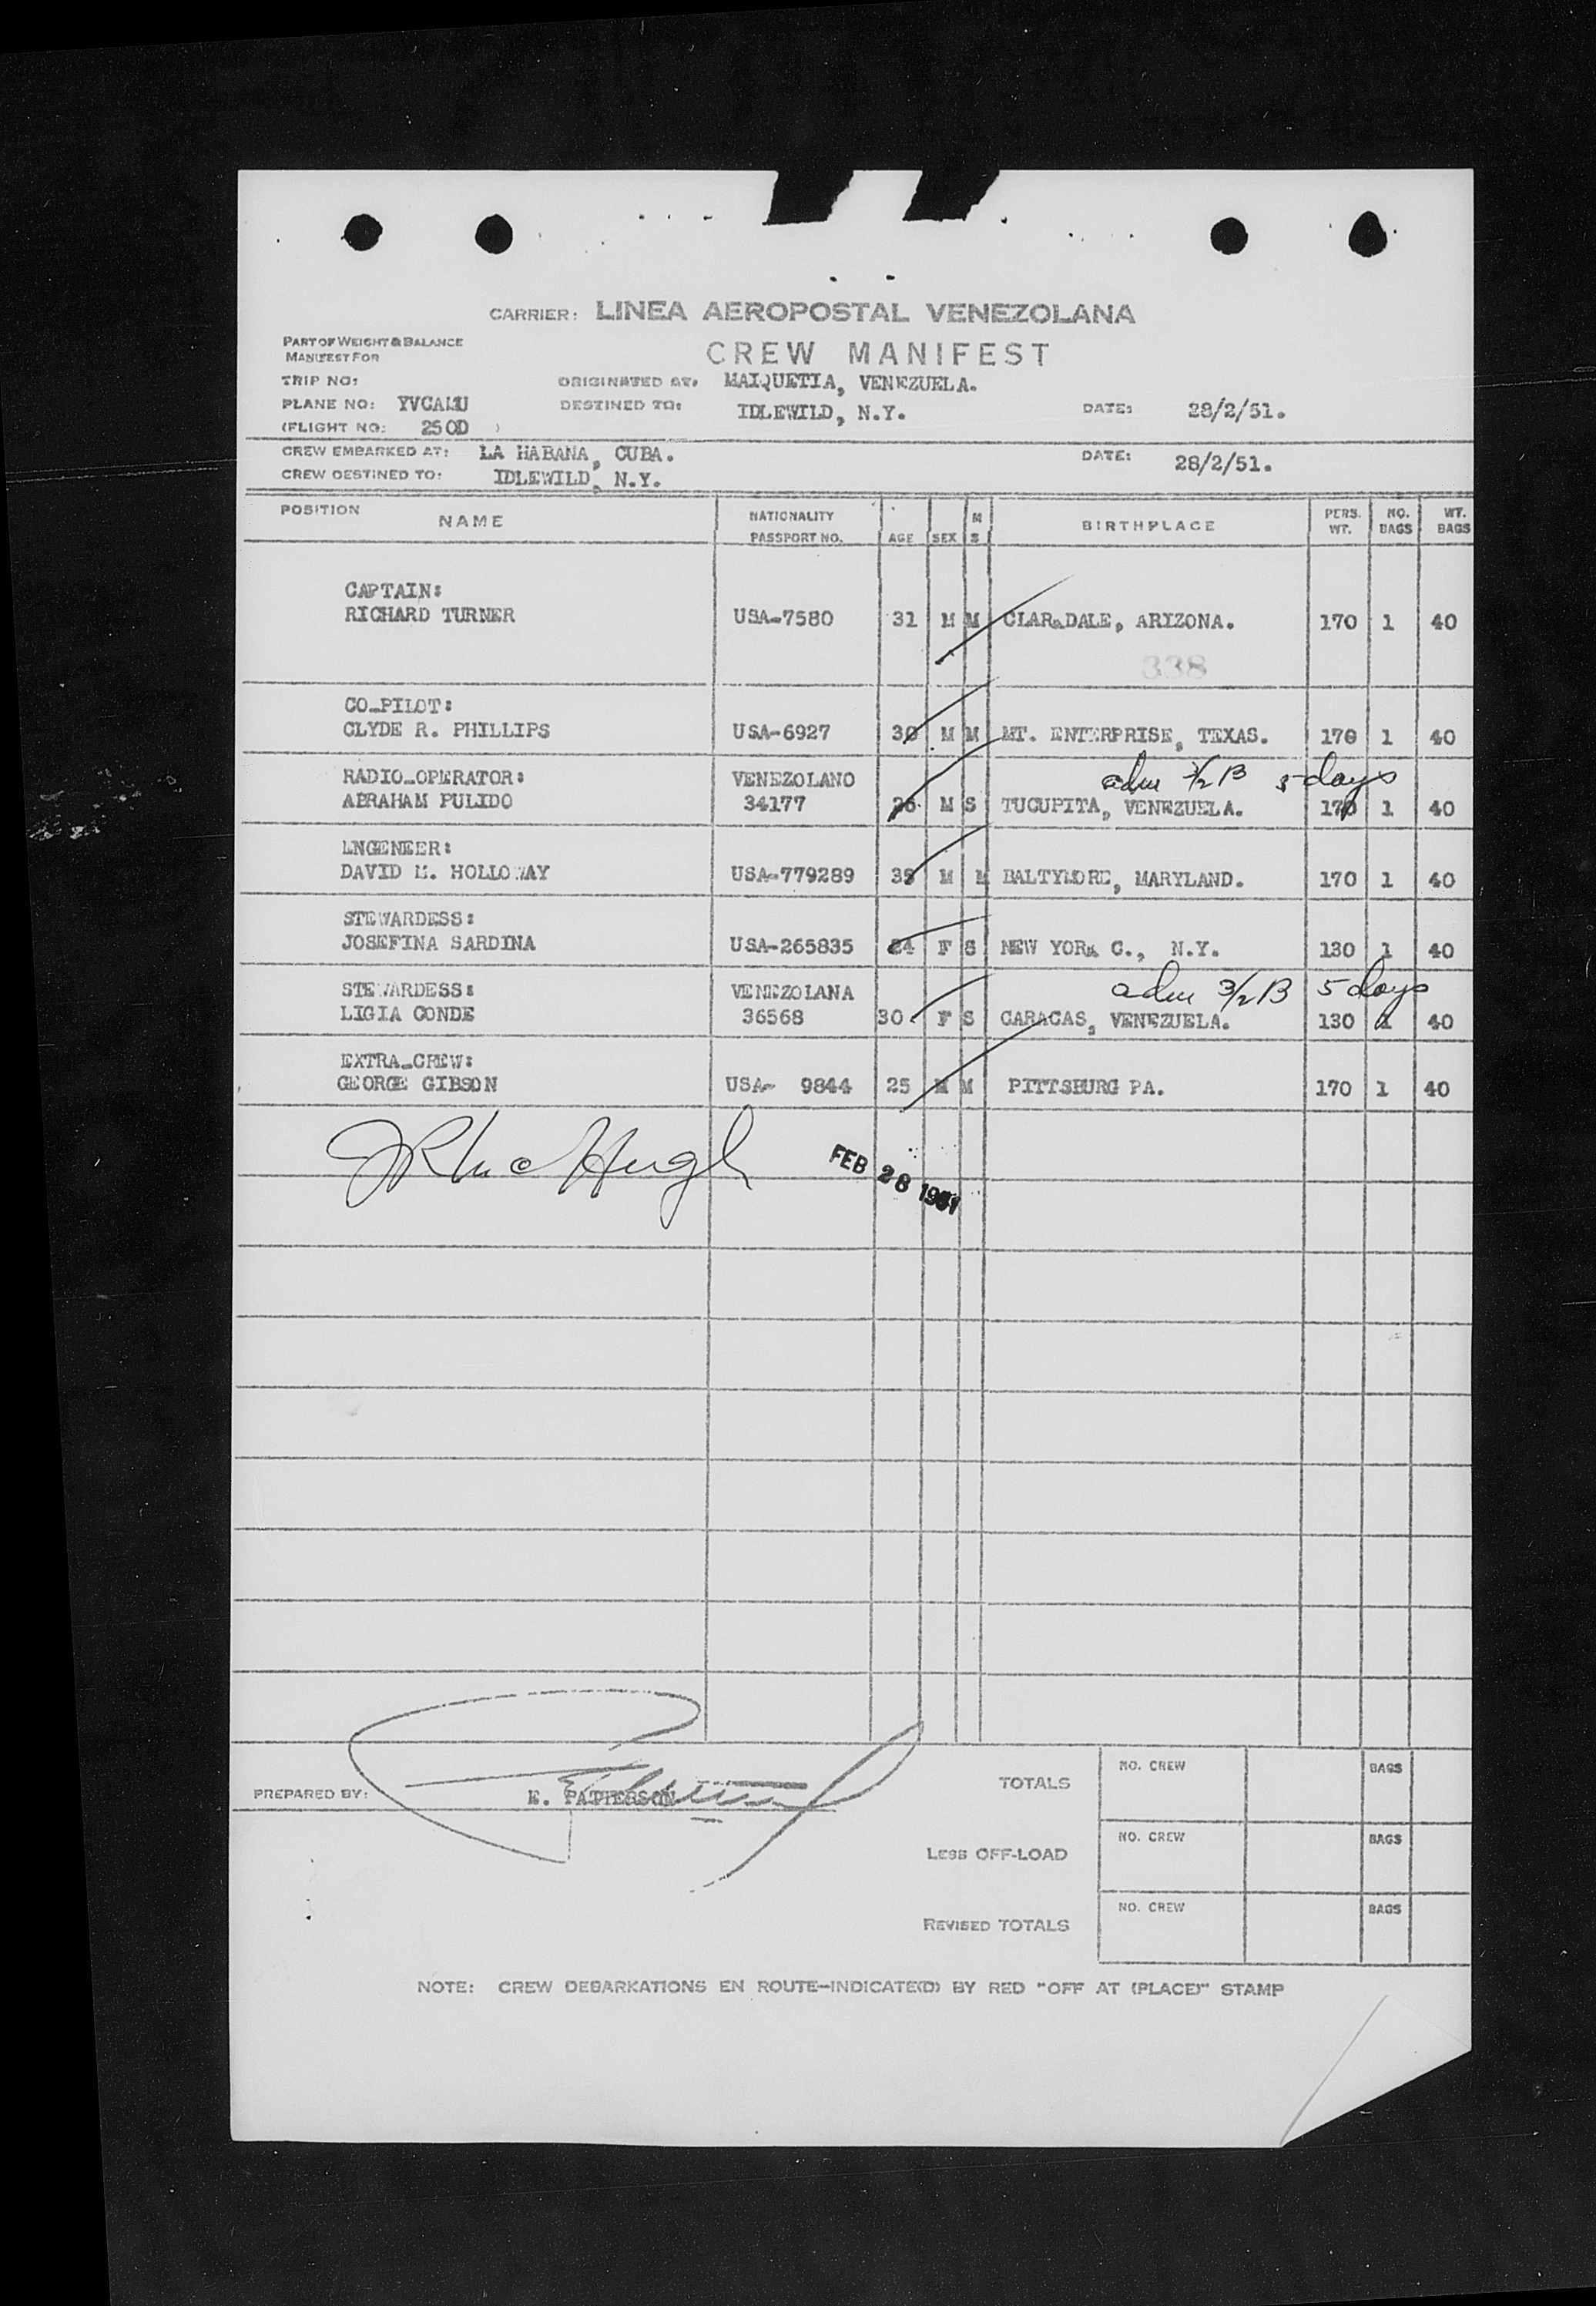 CARRIER: LINEA AEROPOSTAL VENEZOLANA
PART OF WEIGHT & BALANCE
MANIFEST FOR
CREW MANIFEST
TRIP NO:
ORIGINATED AT: MAIQUETIA, VENEZUELA.
PLANE NO: YVCAMU
DESTINED TO: IDLEWILD, N.Y.
DATE: 28/2/51.
(FLIGHT NO: 250D )
CREW EMBARKED AT: LA HABANA, CUBA.
DATE: 28/2/51.
CREW DESTINED TO: IDLEWILD, N.Y.
POSITION NAME NATIONALITY PASSPORT NO. AGE SEX M S BIRTHPLACE PERS. WT. NO. BAGS WT. BAGS
CAPTAIN:
RICHARD TURNER USA-7580 31 M M CLARKDALE, ARIZONA. 170 1 40
338
CO-PILOT:
CLYDE R. PHILLIPS USA-6927 30 M M MT. ENTERPRISE, TEXAS. 170 1 40
RADIO-OPERATOR: VENEZOLANO adm 3/2 B 5 days
ABRAHAM PULIDO 34177 26 M S TUCUPITA, VENEZUELA. 170 1 40
ENGENEER:
DAVID M. HOLLOWAY USA-779289 M M BALTYMORE, MARYLAND. 170 1 40
STEWARDESS:
JOSEFINA SARDINA USA-265835 24 F S NEW YORK C., N.Y. 130 1 40
STEWARDESS: VENEZOLANA adm 3/2 B 5 days
LIGIA CONDE 36568 30 F S CARACAS, VENEZUELA. 130 1 40
EXTRA-CREW:
GEORGE GIBSON USA- 9844 25 M M PITTSBURG PA. 170 1 40
FEB 28 1951
PREPARED BY: E. PATTERSON
TOTALS NO. CREW BAGS
LESS OFF-LOAD NO. CREW BAGS
REVISED TOTALS NO. CREW BAGS
NOTE: CREW DEBARKATIONS EN ROUTE-INDICATE(D) BY RED "OFF AT (PLACE)" STAMP